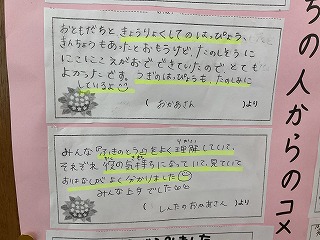 おともだちと きょうりょくしてのはっぴょう、
きんちょうもあったとおもうけど、たのしそうに
にこにこえがおでできていたので、とても
よかったです。つぎのはっぴょうも、たのしみに
しているよ
( おかあさん )より
みんな「ふきのとう」をよく理解していて、
りかい
それぞれ 役の気持ちになっていて、見ていて
やく きも
おはなしがよく分かりました
みんな上手でした
( しんたのおかあさん )より
ちの人からのコメ